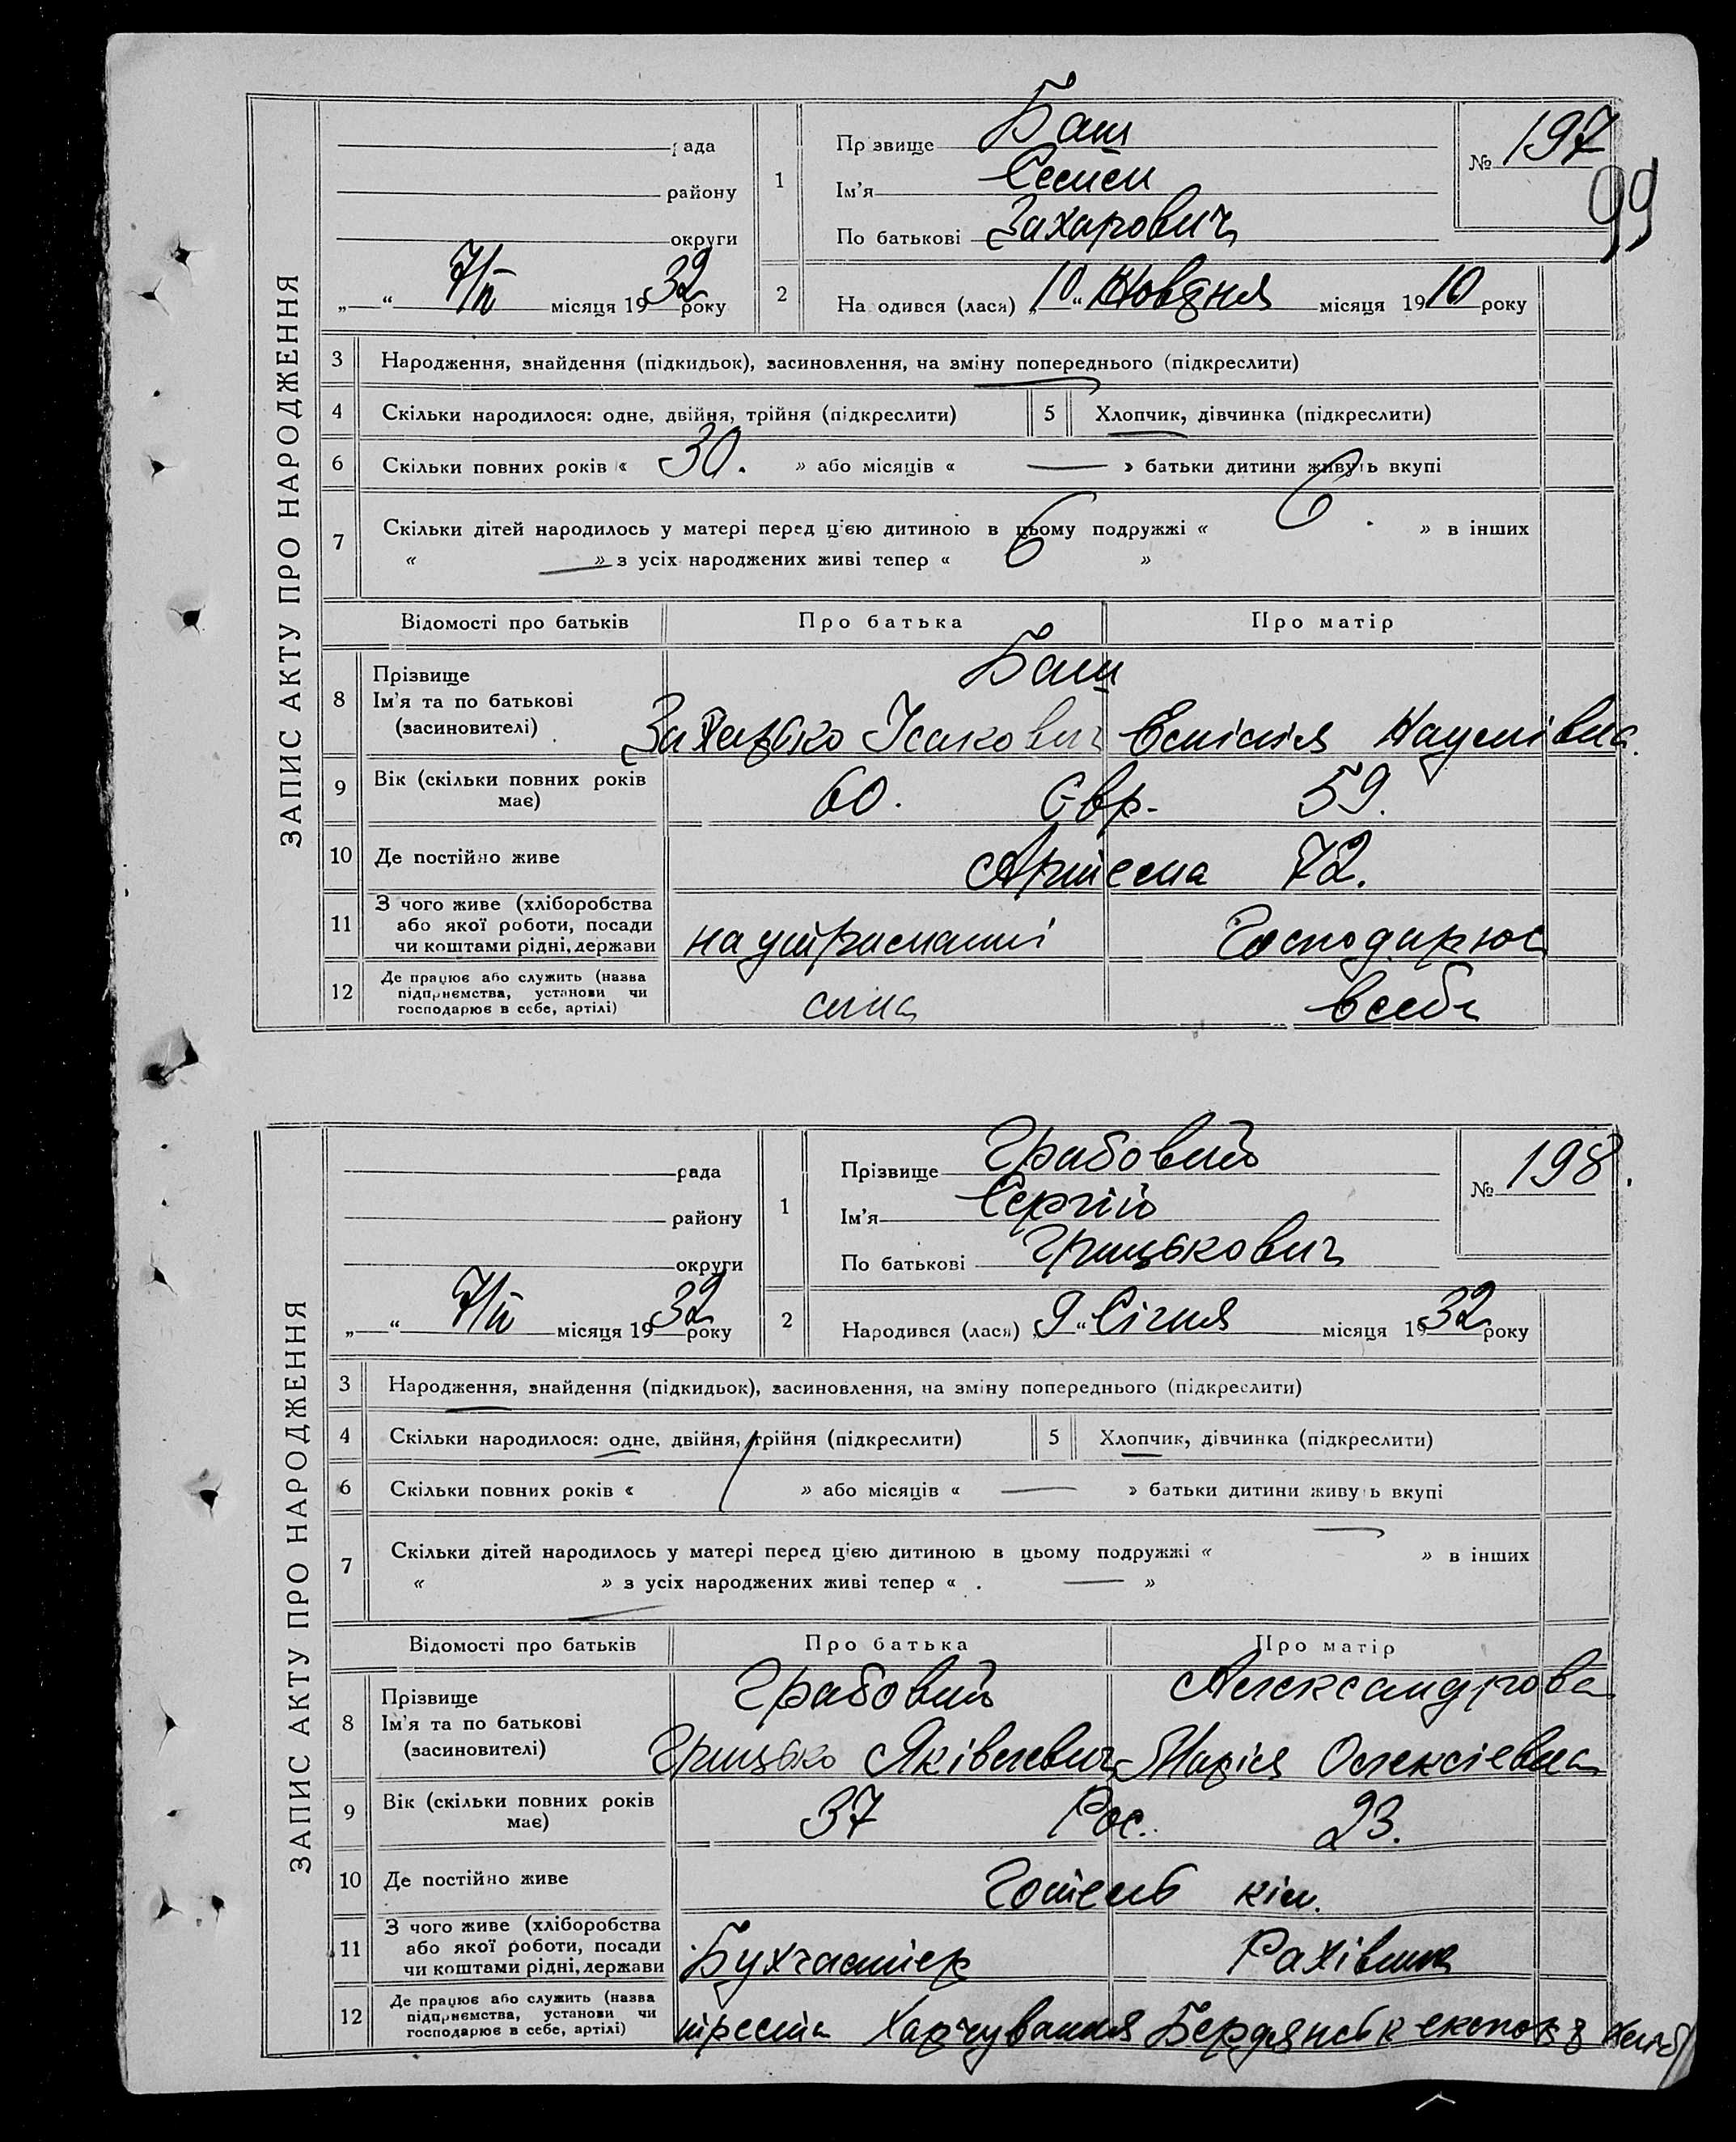 ЗАПИС АКТУ ПРО НАРОДЖЕННЯ
рада
району
округи
„ “ 7/II місяця 1932 року
1
Прізвище Баш
Ім'я Семен
По батькові Захарович
№ 197
99
2
На одився (лася) „10“ Жовдня місяця 1910 року
3 Народження, знайдення (підкидьок), засиновлення, на зміну попереднього (підкреслити)
4 Скільки народилося: одне, двійня, трійня (підкреслити) 5 Хлопчик, дівчинка (підкреслити)
6 Скільки повних років « 30. » або місяців « — » батьки дитини живуть вкупі
7 Скільки дітей народилось у матері перед цією дитиною в цьому подружжі « 6 » в інших
« — » з усіх народжених живі тепер « 6 »
Відомості про батьків Про батька Про матір
8 Прізвище
Ім'я та по батькові
(засиновителі)
Баш
Захарько Ісакович Емілія Наумівна
9 Вік (скільки повних років
має)
60. Євр. 59.
10 Де постійно живе Артема 72.
11 З чого живе (хліборобства
або якої роботи, посади
чи коштами рідні, держави
на утриманні Господарює
12 Де працює або служить (назва
підприємства, установи чи
господарює в себе, артілі)
сина в себе
ЗАПИС АКТУ ПРО НАРОДЖЕННЯ
рада
району
округи
„ “ 7/II місяця 1932 року
1
Прізвище Грабовий
Ім'я Сергій
По батькові Грицькович
№ 198.
2
Народився (лася) „9“ Січня місяця 1932 року
3 Народження, знайдення (підкидьок), засиновлення, на зміну попереднього (підкреслити)
4 Скільки народилося: одне, двійня, трійня (підкреслити) 5 Хлопчик, дівчинка (підкреслити)
6 Скільки повних років « 1 » або місяців « — » батьки дитини живуть вкупі
7 Скільки дітей народилось у матері перед цією дитиною в цьому подружжі « — » в інших
« — » з усіх народжених живі тепер « — »
Відомості про батьків Про батька Про матір
8 Прізвище
Ім'я та по батькові
(засиновителі)
Грабовий Александрова
Грицько Яківлевич Марія Олексіевна
9 Вік (скільки повних років
має)
37 Рос. 23.
10 Де постійно живе Готель кім.
11 З чого живе (хліборобства
або якої роботи, посади
чи коштами рідні, держави
Бухгалтер Рахівник
12 Де працює або служить (назва
підприємства, установи чи
господарює в себе, артілі)
треста Харчування Бердянськ